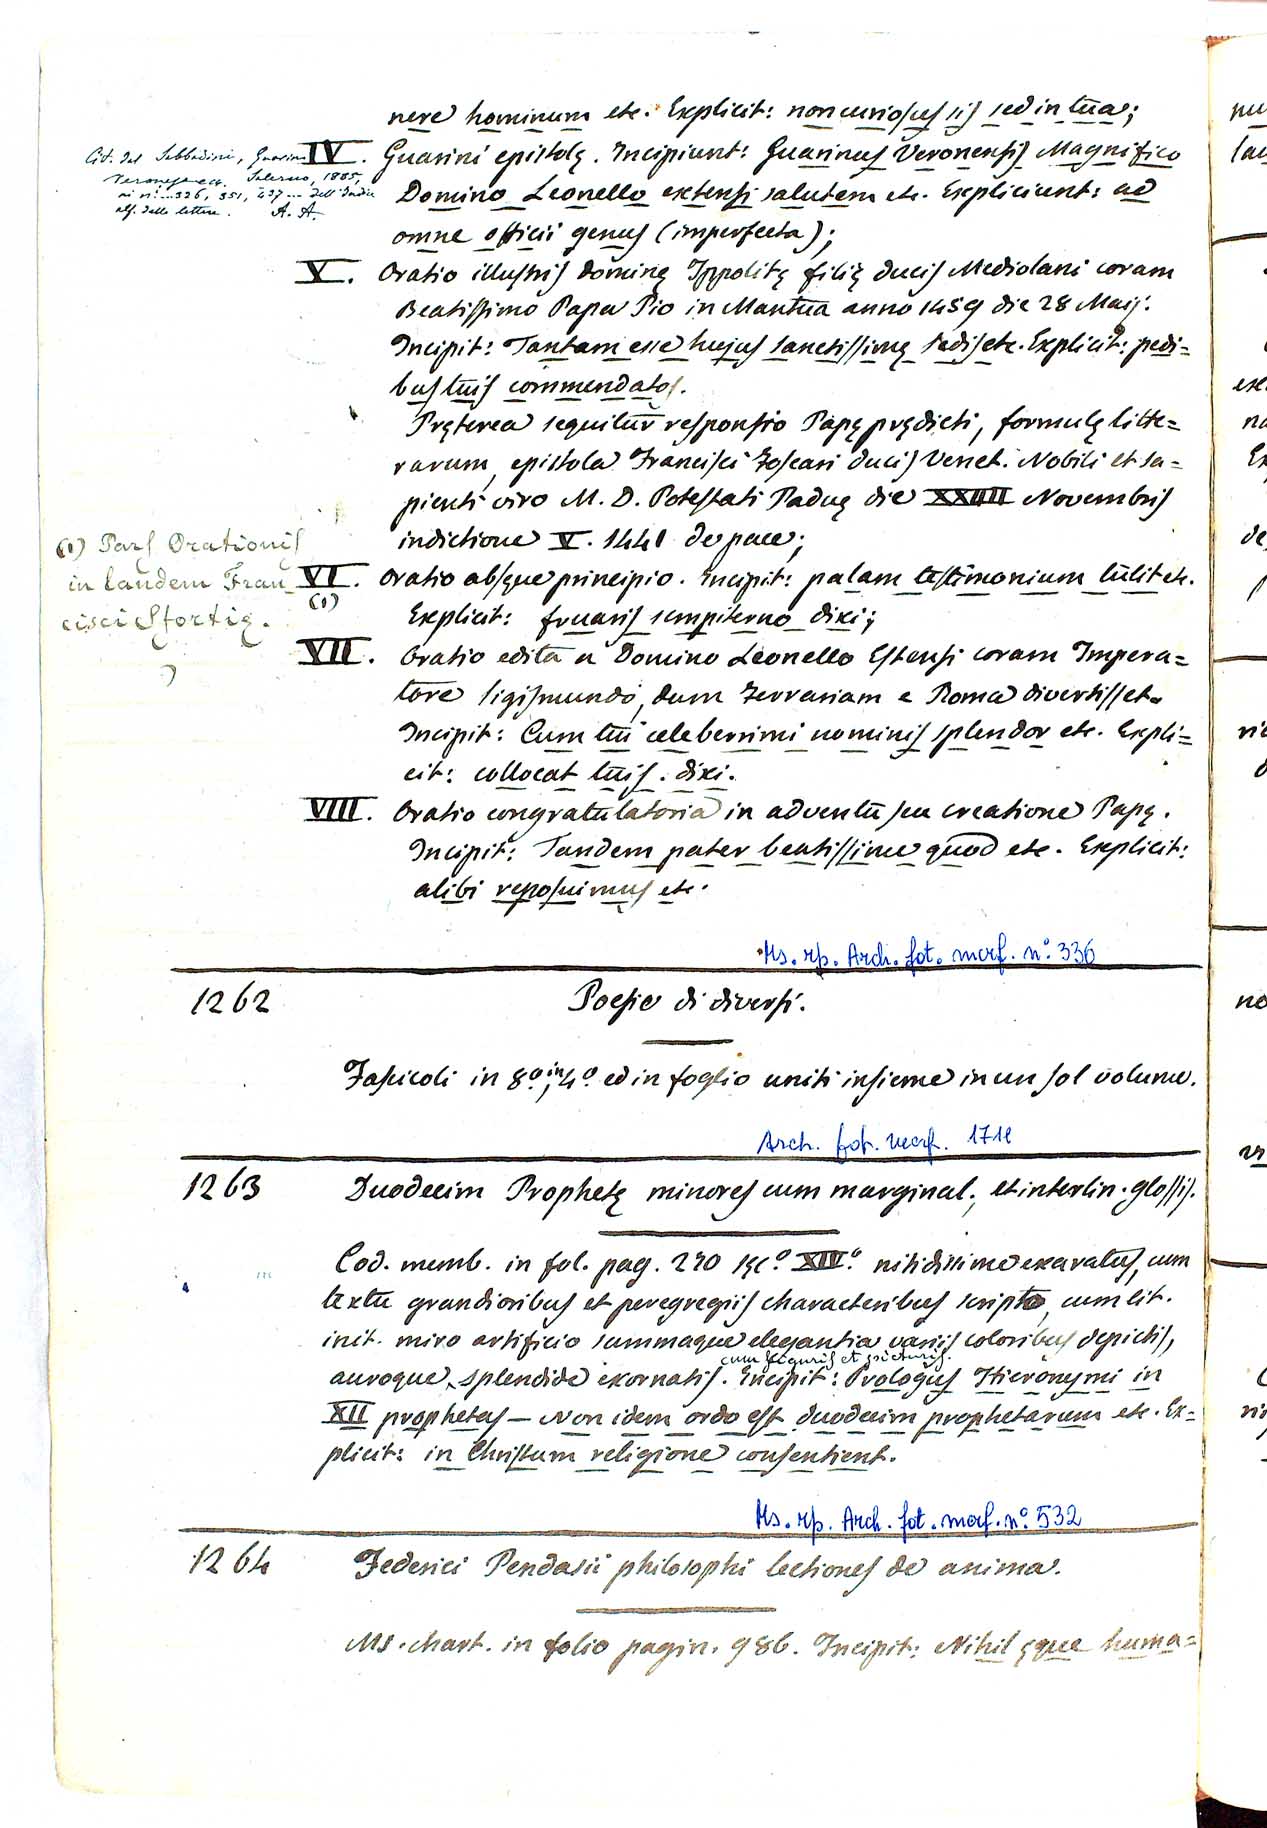 nere hominum etc. Explicit: non curiosus sis sed in tua;
Cit. dal Sabbadini, Guarino
Veronese ecc. Salerno, 1885,
ai ni ... 326, 351, 427 ... dell'Indice
alf. delle lettere. A. A.
IV. Guarini epistolę. Incipiunt: Guarinus Veronensis Magnifico
Domino Leonello extensi salutem etc. Expliciunt: ad
omne officii genus (imperfecta);
V. Oratio illustris dominę Ippolitę filię ducis Mediolani coram
Beatissimo Papa Pio in Mantua anno 1459 die 28 Maij.
Incipit: Tantam esse hujus sanctissimę sedis etc. Explicit: pedi=
bus tuis commendatos.
Pręterea sequitur responsio Papę prędicti, formulę litte=
rarum, epistola Francisci Foscari ducis Venet. Nobili et sa=
pienti viro M. D. Potestati Paduę die XXIIII Novembris
indictione V. 1441 de pace;
(1) Pars Orationis
in laudem Fran_
cisci Sfortię.
VI. Oratio absque principio. Incipit: palam testimonium tulit etc.
(1)
Explicit: fruaris sempiterno dixi;
VII. Oratio edita a Domino Leonello Estensi coram Impera=
tore Sigismundo, dum Ferrariam e Roma divertisset.
Incipit: Cum tui celeberrimi nominis splendor etc. Expli=
cit: collocat tuis. dixi.
VIII. Oratio congratulatoria in adventu seu creatione Papę.
Incipit: Tandem pater beatissime quod etc. Explicit:
alibi reposuimus etc.
Ms. rp. Arch. fot. morf. n.º 336
1262 Poesie di diversi.
Fascicoli in 8.º, in 4.º ed in foglio uniti insieme in un sol volume.
Arch. fot. morf. 1711
1263 Duodecim Prophetę minores cum marginal., et interlin. glossis.
Cod. memb. in fol. pag. 270 sęc.º XIII.º nitidissime exaratus, cum
textu grandioribus et peregregiis characteribus scripto, cum lit.
init. miro artificio summaque elegantia variis coloribus depictis,
cum figuris et picturis.
auroque, splendide exornatis. Incipit: Prologus Hieronymi in
XII prophetas — Non idem ordo est duodecim prophetarum etc. Ex=
plicit: in Christum religione consentient.
Ms. rp. Arch. fot. morf. n.º 532
1264 Federici Pendasii philosophi lectiones de anima.
Ms. chart. in folio pagin. 986. Incipit: Nihil ęque huma=